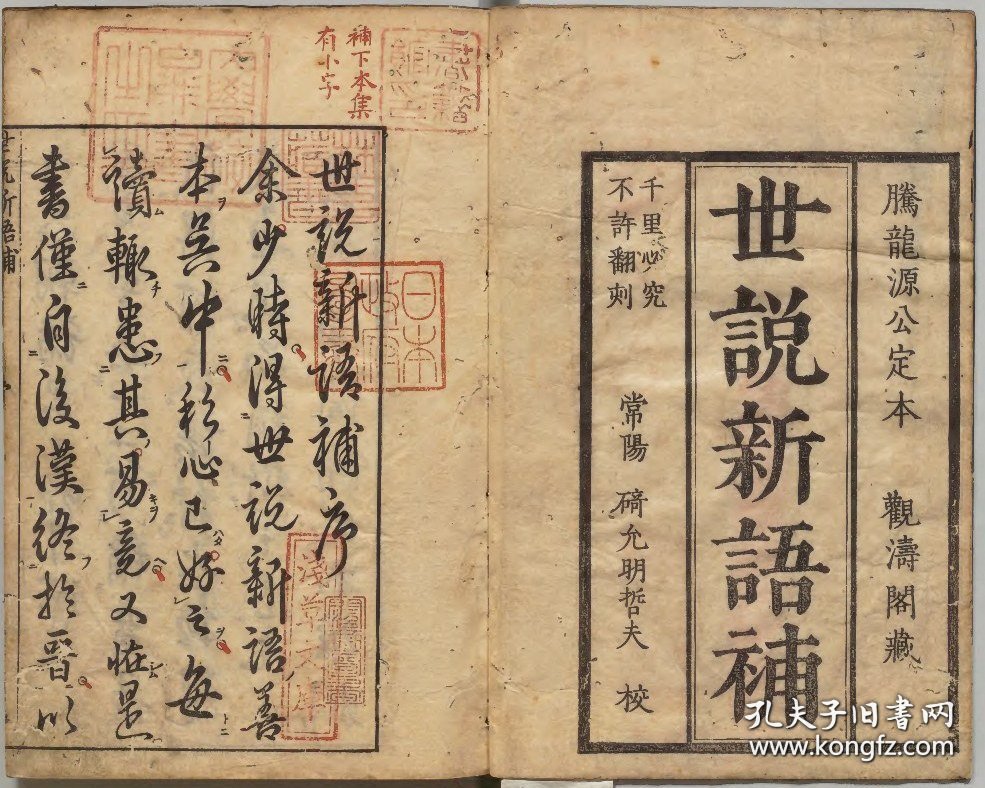 騰龍源公定本 觀濤閣藏
世説新語補
千里必究
不許翻刻
常陽 碕允明哲夫 校
補下本集
有小字
世説新語補序
余少時得世説新語善
本吳中私心已好之每
讀輒患其易竟又怪是
書僅自後漢終於晉以
世説新語補
日本
淺草文庫
孔夫子旧书网
www.kongfz.com